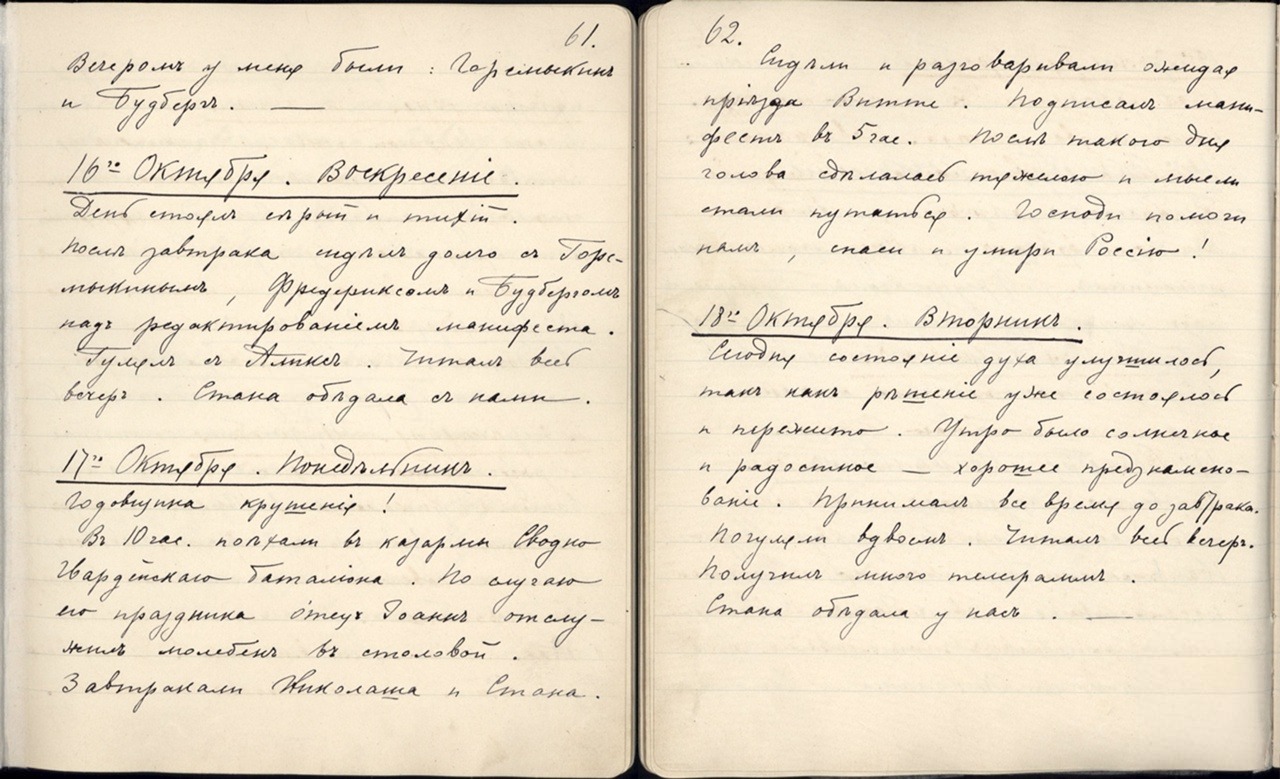 61.
Вечеромъ у меня были : Горемыкинъ
и Будбергъ. —
16го Октября. Воскресеніе.
День стоялъ сѣрый и тихій.
Послѣ завтрака сидѣлъ долго съ Горе-
мыкинымъ, Фредериксомъ и Будбергомъ
надъ редактированіемъ манифеста.
Гулялъ съ Аликсъ. Читалъ весь
вечеръ. Стана обѣдала съ нами.
17го Октября. Понедѣльникъ.
Годовщина крушенія!
Въ 10 час. поѣхали въ казармы Сводно
Гвардейскаго баталіона. По случаю
его праздника отецъ Іоаннъ отслу-
жилъ молебенъ въ столовой.
Завтракали Николаша и Стана.
62.
Сидѣли и разговаривали ожидая
пріѣзда Витте. Подписалъ мани-
фестъ въ 5 час. Послѣ такого дня
голова сдѣлалась тяжелою и мысли
стали путаться. Господи помоги
намъ, спаси и умири Россію!
18го Октября. Вторникъ.
Сегодня состояніе духа улучшилось,
такъ какъ рѣшеніе уже состоялось
и пережито. Утро было солнечное
и радостное — хорошее предзнамено-
ваніе. Принималъ все время до завтрака.
Погуляли вдвоемъ. Читалъ весь вечеръ.
Получилъ много телеграммъ.
Стана обѣдала у насъ. —